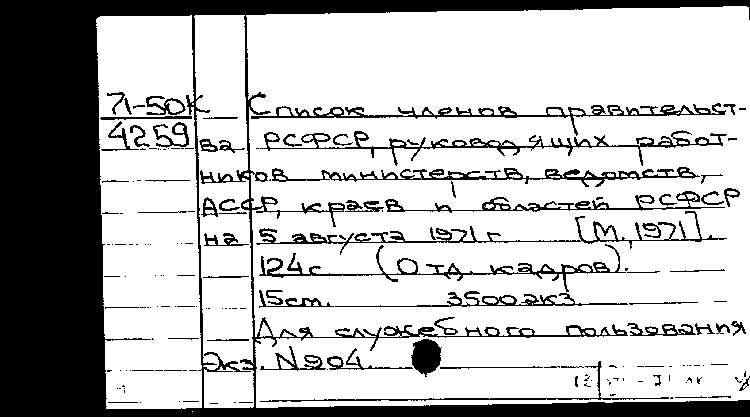 71-50К Список членов правительст-
4259 ва РСФСР, руководящих работ-
ников министерств, ведомств,
АССР, краев и областей РСФСР
на 5 августа 1971 г. [М., 1971].
124с (Отд. кадров).
15см. 3500экз.
Для служебного пользования
Экз. N904.